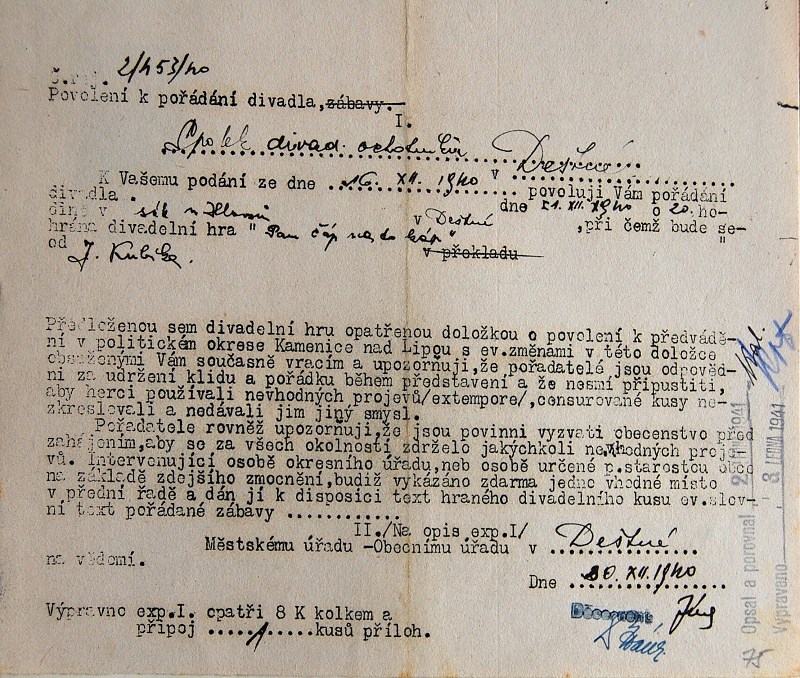 č.rej. 2/453/40
Povolení k pořádání divadla, zábavy.
I.
Spolek divad. ochotníků v Deštné
K Vašemu podání ze dne 16. XII. 1940 povoluji Vám pořádání
divadla . dne 21. XII. 1940 o 20. ho-
dině v sále v Deštné , při čemž bude se-
hrána divadelní hra " Pan čáp nado káp " v překladu "
od J. Kubíka.
Předloženou sem divadelní hru opatřenou doložkou o povolení k předvádě-
ní v politickém okrese Kamenice nad Lipou s ev.změnami v této doložce
obsaženými Vám současně vracím a upozorňuji,že pořadatelé jsou odpověd-
ni za udržení klidu a pořádku během představení a že nesmí připustiti,
aby herci používali nevhodných projevů/extempore/,censurované kusy ne-
zkreslovali a nedávali jim jiný smysl.
Pořadatele rovněž upozorňuji,že jsou povinni vyzvati obecenstvo před
zahájením,aby se za všech okolností zdrželo jakýchkoli nevhodných proje-
vů. Intervenující osobě okresního úřadu,neb osobě určené p.starostou obce
na základě zdejšího zmocnění,budiž vykázáno zdarma jedno vhodné místo
v přední řadě a dán jí k disposici text hraného divadelního kusu ev.slov-
ní text pořádané zábavy ...........
II./Na opis exp.I/
Městskému úřadu -Obecnímu úřadu v Deštné
na vědomí.
Dne 30. XII. 1940
Výpravno exp.I. opatři 8 K kolkem a
připoj .....1....kusů příloh.
Opsal a porovnal 2. LEDNA 1941
Vypraveno 3. LEDNA 1941